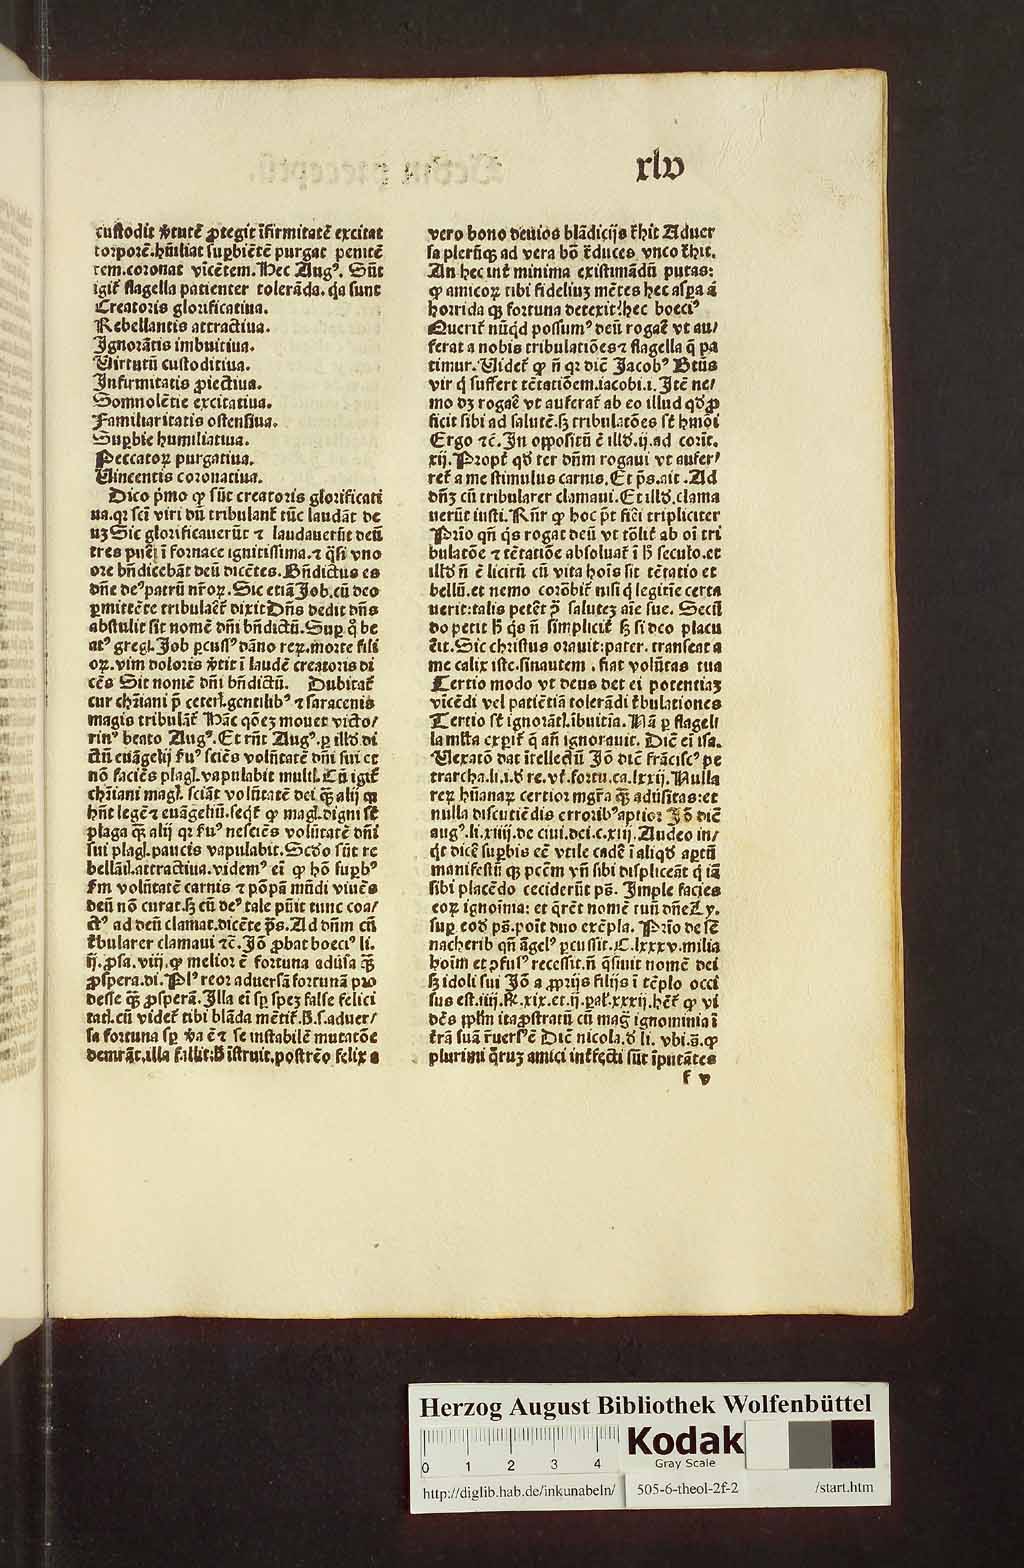 xlv
custodit v̄tutē ꝓtegit īfirmitatē excitat
torporē.hūiliat suꝑbiētē purgat penitē
tem.coronat vicētem.Hec Augꝰ. Sūt
igit᷑ flagella patienter tolerāda. q̄a sunt
Creatoris glorificatiua.
Rebellantis attractiua.
Ignorātis imbuitiua.
Virtutū custoditiua.
Infirmitatis ꝓiectiua.
Somnolētie excitatiua.
Familiaritatis ostensiua.
Suꝑbie humiliatiua.
Peccatoꝝ purgatiua.
Vincentis coronatiua.
Dico p̄mo ꝙ sūt creatoris glorificati
ua.qꝛ scī viri dū tribulant᷑ tūc laudāt de
uꝫ Sic glorificauerūt ⁊ laudauerūt deū
tres pueri ī fornace ignitissima.⁊ q̄si vno
ore bn̄dicebāt deū dicētes. Bn̄dictus es
dn̄e deꝰ patrū nr̄oꝝ. Sic etiā Job.cū deo
ꝑmittēte tribulaēt᷑ dixit Dn̄s dedit dn̄s
abstulit sit nomē dn̄i bn̄dictū. Suꝑ q̊ be
atꝰ greg. Job ꝑcussꝰ dāno reꝝ.morte fili
oꝝ.vim doloris v̄tit ī laudē creatoris di
cēs Sit nomē dn̄i bn̄dictū. Dubitat᷑
cur chr̄iani p̄ ceteri.gentilibꝰ ⁊ saracenis
magis tribulāt᷑ Hāc qōeꝫ mouet victo/
rinꝰ beato Augꝰ. Et rn̄t Augꝰ.ꝑ illd̄ di
ctū euāgelij Seruꝰ sciēs volūtatē dn̄i sui et
nō faciēs plagl.vapulabit multl. Cū igit᷑
chr̄iani magl. sciāt volūtatē dei q̄ꝫ alij qꝛ
hn̄t legē ⁊ euāgeliū.seqt᷑ ꝙ magl.digni st̄
plaga q̄ꝫ alij qꝛ Seruꝰ nesciēs volūtatē dn̄i
sui plagl.paucis vapulabit. Scd̄o sūt re
bellātl.attractiua.videmꝰ eī ꝙ hō suꝑbꝰ
fm volūtatē carnis ⁊ pōpā mūdi viuēs
deū nō curat.sꝫ cū deꝰ tale pūit tunc coa/
ctꝰ ad deū clamat.dicēte p̄s. Ad dn̄m cū
tribularer clamaui ⁊c. Jō ꝓbat boeciꝰ li.
ij.ꝓsa.viij.ꝙ melior ē fortuna aduersa q̄ꝫ
ꝓspera.di. Plꝰ reor aduersā fortunā pro
desse q̄ꝫ ꝓsperā. Illa eī sꝑ speꝫ false felici
tatl.cū videt᷑ tibi blāda mētit᷑. H̄.s.aduer/
sa fortuna sꝑ v̄a ē ⁊ se instabilē mutatōe
demrāt.illa fallit:h̄ īstruit.postrēo felix a
vero bono deuios blādicijs tr̄hit Aduer
sa pleruq̄ꝫ ad vera bō tr̄duces vnco tr̄hit.
An hec int᷑ minima existimādū putas:
ꝙ amicoꝝ tibi fideliuꝫ mētes hec aspa ā
horrida qꝫ fortuna detexit? hec boeciꝰ
Querit᷑ nūqd possumꝰ deū rogare vt au/
ferat a nobis tribulatiōes ⁊ flagella q̄ pa
timur. Videt᷑ ꝙ n̄ qꝛ dicit Jacobꝰ Btūs
vir q̇ suffert tētatiōem.iacobi.i. Itē ne/
mo dꝫ rogare vt auferat᷑ ab eo illud qd̄ ꝓ
ficit sibi ad salutē.sꝫ tribulatōes st̄ hmōi
Ergo ⁊c. In oppositū ē illd̄.ij.ad corīt.
xij. Propt᷑ qd̄ ter dn̄m rogaui vt aufer/
ret᷑ a me stimulus carnis. Et p̄s.ait. Ad
dn̄ꝫ cū tribularer clamaui. Et illd̄.clama
uerūt iusti. Rn̄r ꝙ hoc p̄t fieri tripliciter
Prīo qn̄ q̇s rogat deū vt tōlit᷑ ab oī tri
bulatōe ⁊ tētatiōe absoluat᷑ ī h̄ seculo.et
illd̄ n̄ ē licitū cū vita hoīs sit tētatio et
bellū.et nemo corōbit᷑ nisi q̇ legitie certa
uerit:talis petēt p̄ saluteꝫ aīe sue. Secū
do petit h̄ q̇s n̄ simplicit᷑ sꝫ si deo placu
erit. Sic christus orauit:pater. transeat a
me calix iste.sinautem. fiat volūtas tua
Tertio modo vt deus det ei potentiaꝫ
vicēdi vel patiētiā tolerādi tribulationes
Tertio st̄ ignorātl.ībuitia. Nā ꝑ flagell
la mlta expit᷑ q̄ an̄ ignorauit. Dicit ei isa.
Vexatō dat ītellectū Jō dicit frāciscꝰ pe
trarcha.li.i.d̄ re.vt᷑.fortu.ca.lxxij. Nulla
reꝝ hūanaꝝ certior mgr̄a q̄ꝫ aduersitas:et
nulla discutiēdis erroribꝰ aptior Jō dicit
augꝰ.li.xiiij.de ciui.dei.c.xiij. Audeo in/
q̇t dice suꝑbis eē vtile cadē ī aliqd̄ aꝑtū
manifestū qꝫ pcc̄m vn̄ sibi displiceāt q̇ iā
sibi placēdo ceciderūt p̄s. Imple facies
eoꝝ ignoīnia: et q̄rēt nomē tuū dn̄e Ly.
suꝑ eod̄ p̄s.poīt duo exēpla. Prīo de se
nacherib qn̄ āgelꝰ ꝑcussit.C.lxxxv.milia
hoīm et ꝯfusꝰ recessit.n̄ q̄siuit nomē dei
sꝫ idoli sui Jō a ꝓprijs filijs ī tēplo occi
sus est.iiij.Re.xix.et.ij.ꝑal.xxxij.hēt᷑ ꝙ vi
dēs ipm ita ꝓstratū cū maḡ ignominia ī
trā suā reuersꝰ ē Dicit nicola.d̄ li. vbi.s̄.ꝙ
plurimi q̄ruꝫ amici int᷑fecti sūt īputātes
f v
Herzog August Bibliothek Wolfenbüttel
0 1 2 3 4
Kodak
Gray Scale
http://diglib.hab.de/inkunabeln/ 505-6-theol-2f-2 /start.htm